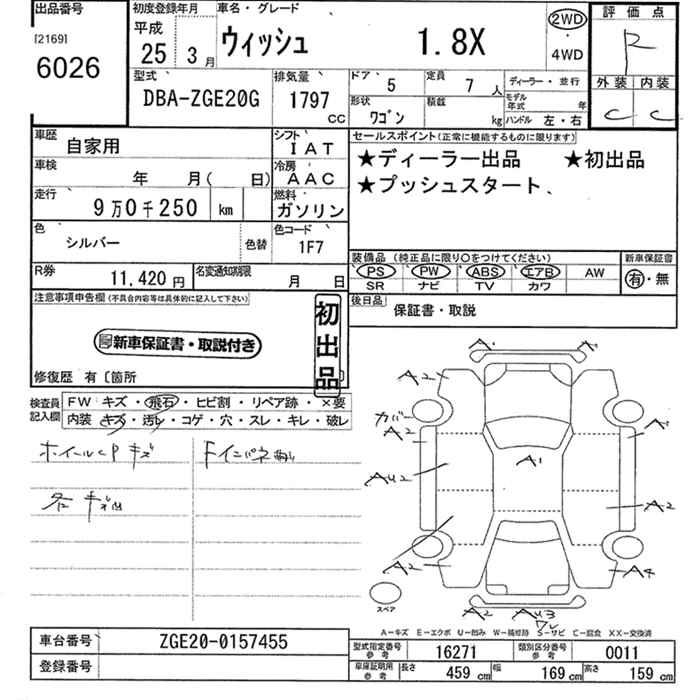 出品番号
[2169]
6026
初度登録年月
平成
25年 3月
車名・グレード
ウィッシュ 1.8X
2WD
・
4WD
評価点
R
外装 内装
C C
型式
DBA-ZGE20G
排気量
1797 CC
ドア 5
定員 7 人
ディーラー・並行
形状 ワゴン
積載 kg
モデル年式 年
ハンドル 左・右
車歴 自家用
シフト IAT
車検 年 月( 日)
冷房 AAC
走行 9万0千250 km
燃料 ガソリン
色 シルバー
色替
色コード 1F7
R券 11,420円
名変通知期限 月 日
セールスポイント(正常に機能するものに限ります)
★ディーラー出品 ★初出品
★プッシュスタート、
装備品 (純正品に限り○をつけてください)
新車保証書
PS PW ABS エアB AW
SR ナビ TV カワ
有・無
後日品
保証書・取説
注意事項申告欄(不具合内容等は具体的に記入して下さい)
新車保証書・取説付き
初出品
修復歴 有〔箇所
検査員記入欄
FW キズ・飛石・ヒビ割・リペア跡・×要
内装 キズ・汚れ・コゲ・穴・スレ・キレ・破レ
ホイールCP キズ
A1
A2
カバー
A2
A1
A1
AU2
A2
A2
A4
スペア
A2
AU3
A-キズ E-エクボ U-凹み W-補修跡 S-サビ C-腐食 XX-交換済
車台番号 ZGE20-0157455
登録番号
型式指定番号 参考 16271
類別区分番号 参考 0011
車庫証明用 参考 長さ 459 cm 幅 169 cm 高さ 159 cm